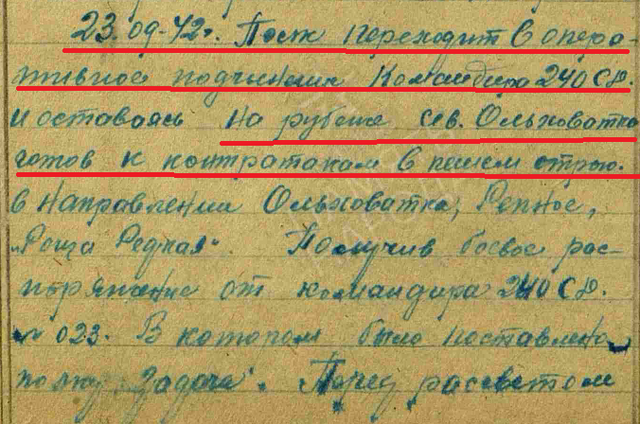 23.09-42г. Полк переходит в опера-
тивное подчинение Командира 240 СД.
и оставаясь на рубеже сев. Ольховатка
готов к контратакам в пешем строю.
в направлении Ольховатка, Репное,
„Роща Редкая". Получив боевое рас-
поряжение от командира 240 СД.
№ 023. В котором было поставлена
полку „Задача". Перед рассветом